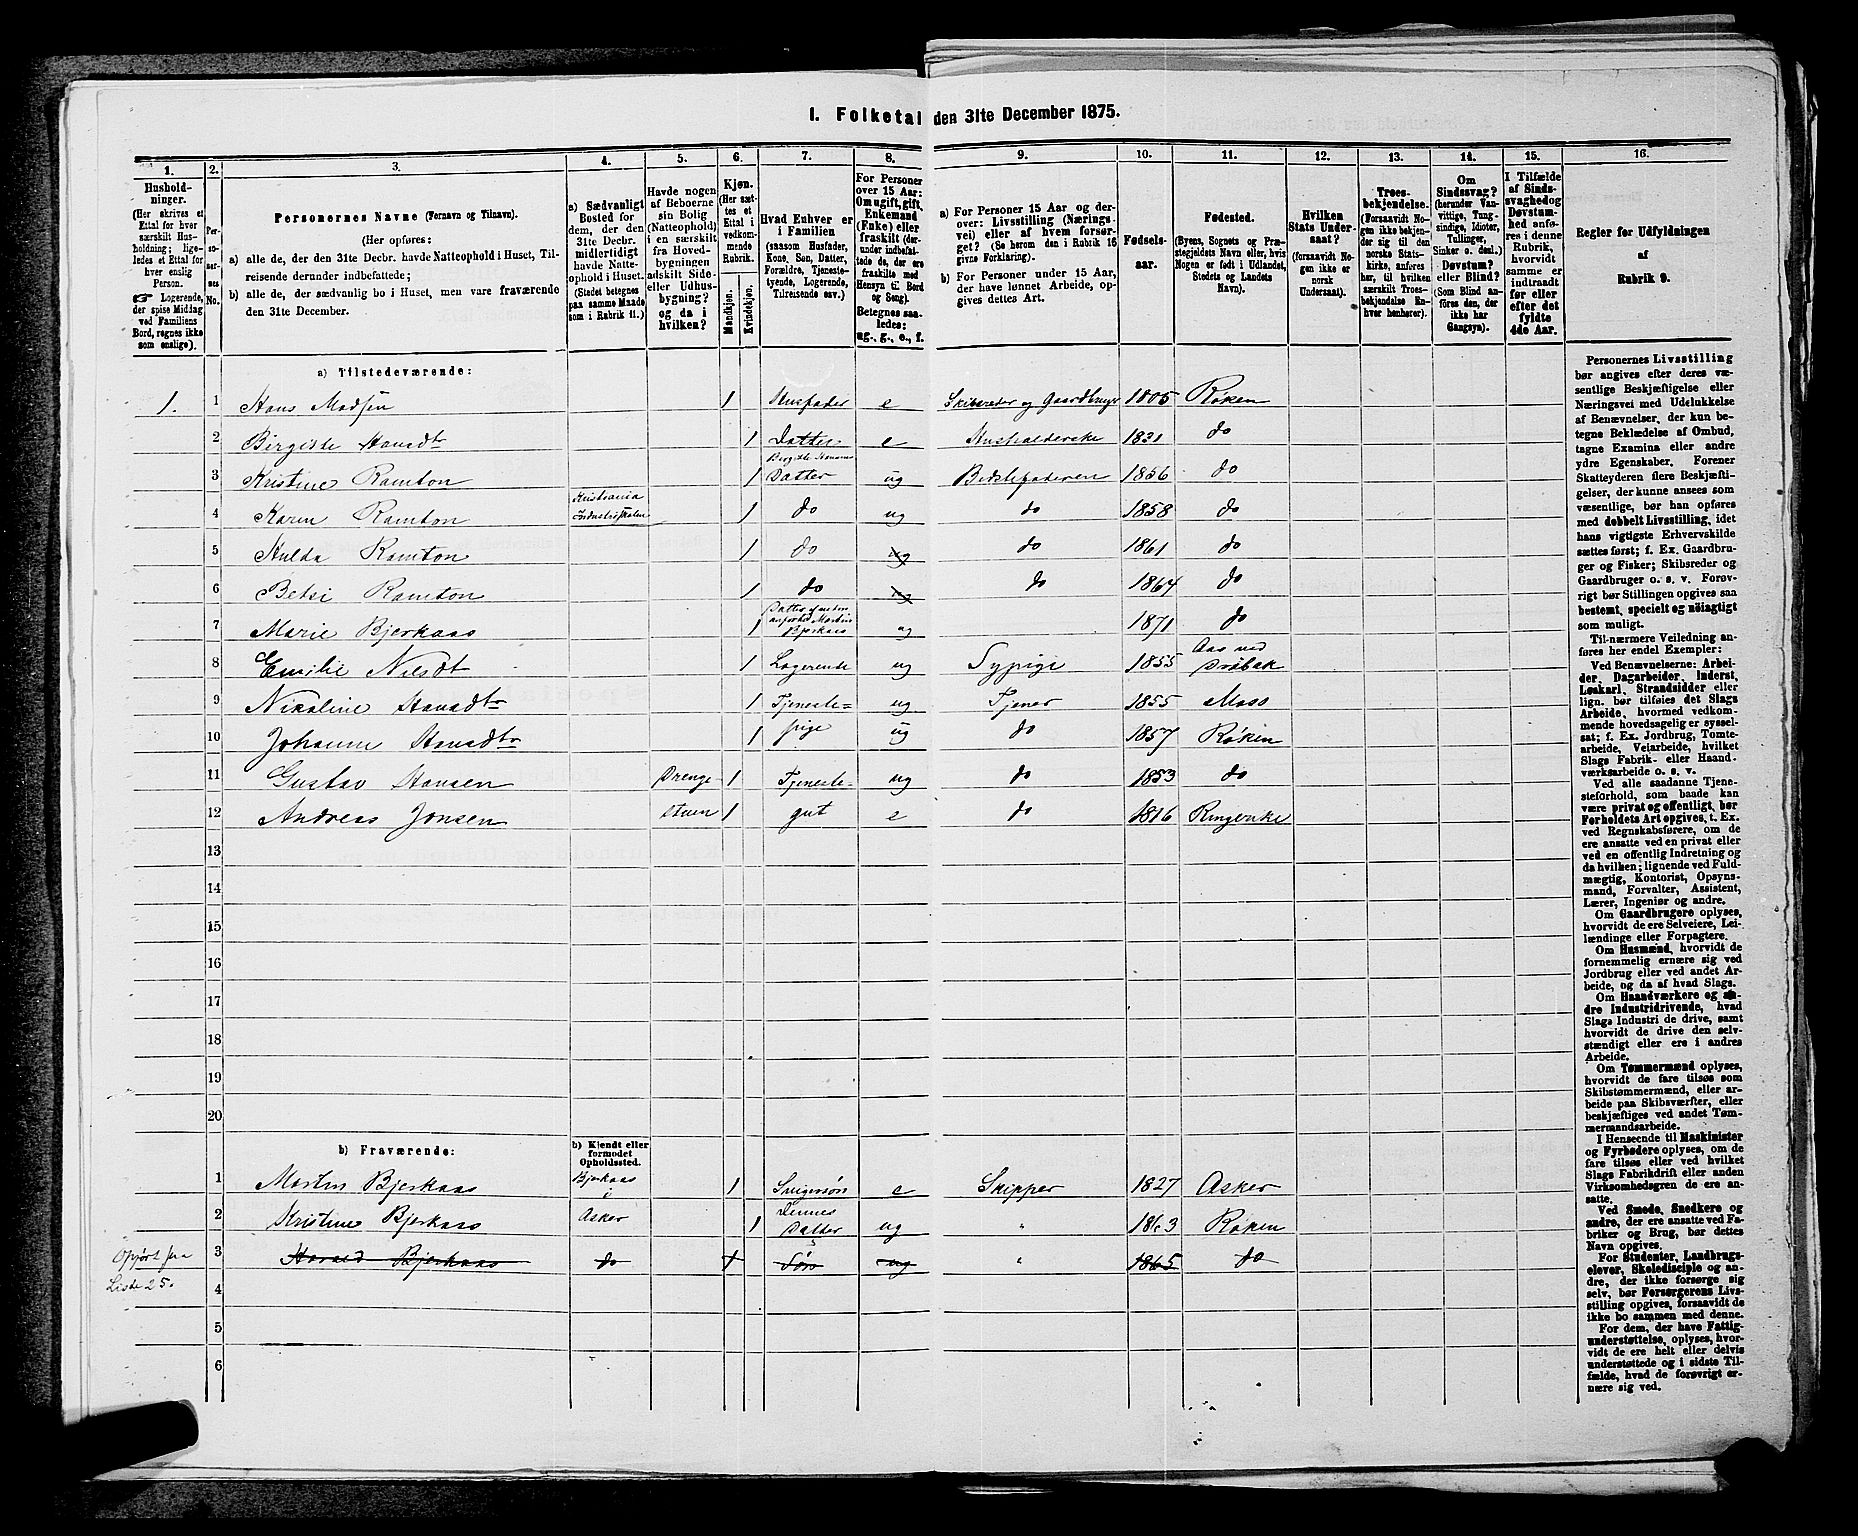 I. Folketal den 31te December 1875.
1. 2. 3. 4. 5. 6. 7. 8. 9. 10. 11. 12. 13. 14. 15. 16.
Hushold-
ninger.
(Her skrives et
Ettal for hver
særskilt Hus-
holdning; lige-
ledes et Ettal for
hver enslig
Person.
☞ Logerende,
der spise Middag
ved Familiens
Bord, regnes ikke
som enslige).
Personernes Navne (Fornavn og Tilnavn).
(Her opføres:
a) alle de, der den 31te Decbr. havde Natteophold i Huset, Til-
reisende derunder indbefattede;
b) alle de, der sædvanlig bo i Huset, men vare fraværende
den 31te December.
a) Sædvanligt
Bosted for
dem, der den
31te Decbr.
midlertidigt
havde Natte-
ophold i Huset.
(Stedet betegnes
paa samme Maade
som i Rubrik 11.)
Havde nogen
af Beboerne
sin Bolig
(Natteophold)
i en særskilt
fra Hoved-
bygningen
adskilt Side-
eller Udhus-
bygning?
og da i
hvilken?
Kjøn.
(Her sæt-
tes et
Ettal i
vedkom-
mende
Rubrik.
Mandkjøn.
Kvindekjøn.
Hvad Enhver er
i Familien
(saasom Husfader,
Kone, Søn, Datter,
Forældre, Tjeneste-
tyende, Logerende,
Tilreisende osv.)
For Personer
over 15 Aar:
Om ugift, gift,
Enkemand
(Enke) eller
fraskilt (der-
under indbefat-
tede de, der ere
fraskilte med
Hensyn til Bord
og Seng).
Betegnes saa-
ledes:
ug., g., e., f.
a) For Personer 15 Aar og der-
over: Livsstilling (Nærings-
vei) eller af hvem forsør-
get? (Se herom den i Rubrik 16
givne Forklaring).
b) For Personer under 15 Aar,
der have lønnet Arbeide, op-
gives dettes Art.
Fødsels-
aar.
Fødested.
(Byens, Sognets og Præ-
stegjeldets Navn eller, hvis
Nogen er født i Udlandet,
Stedets og Landets
Navn).
Hvilken
Stats Under-
saat?
(forsaavidt No-
gen ikke er
norsk
Undersaat).
Troes-
bekjendelse.
(Forsaavidt No-
gen ikke bekjen-
der sig til den
norske Stats-
kirke, anføres
her, til hvilket
særskilt Troes-
bekjendelse En-
hver henhører).
Om
Sindssvag?
(herunder Van-
vittige, Tung-
sindige, Idioter,
Tullinger,
Sinker o. desl.)
Døvstum?
eller Blind?
(Som Blind an-
føres den, der
ikke har
Gangsyn).
I Tilfælde
af Sinds-
svaghed og
Døvstum-
hed anføres
i denne
Rubrik,
hvorvidt
samme er
indtraadt
før eller
efter det
fyldte
4de Aar.
Regler for Udfyldningen
af
Rubrik 9.
a) Tilstedeværende:
1. 1 Hans Madsen 1 Husfader e Skibsreder og Gaardbruger 1805 Røken
2 Birgitte Hansdtr 1 Datter e Husholderske 1831 do
3 Kristine Ramton 1 Birgitte Hansens Datter ug Bedstefaderen 1856 do
4 Karen Ramton Kristiania Industriskolen 1 do ug do 1858 do
5 Hulda Ramton 1 do ug do 1861 do
6 Betsi Ramton 1 do ug do 1864 do
7 Marie Bjerkaas 1 Datter af neden anførte Martin Bjerkaas ug 1871 do
8 Emilie Nilsdt 1 Logerende ug Sypige 1855 Aas ved Drøbak
9 Nikoline Hansdtr 1 Tjeneste= ug Tjener 1855 Moss
10 Johanne Hansdtr 1 pige ug do 1857 Røken
11 Gustav Hansen Drenge- 1 Tjeneste= ug do 1853 do
12 Andreas Jonsen stuen 1 gut e do 1816 Ringerike
13
14
15
16
17
18
19
20
b) Fraværende:
b) Kjendt eller
formodet
Opholdssted.
1 Martin Bjerkaas Bjerkaas i 1 Svigersøn e Skipper 1827 Asker
2 Kristine Bjerkaas Asker 1 Dennes Datter ug " 1863 Røken
Opført paa Liste 25. 3 Harald Bjerkaas do 1 Søn ug " 1865 do
4
5
6
Personernes Livsstilling
bør angives efter deres væ-
sentlige Beskjæftigelse eller
Næringsvei med Udelukkelse
af Benævnelser, der kun be-
tegne Beklædelse af Ombud,
tagne Examina eller andre
ydre Egenskaber. Forener
Skatteyderen flere Beskjæf-
tigelser, der kunne ansees som
væsentlige, bør han opføres
med dobbelt Livsstilling, idet
hans vigtigste Erhvervskilde
sættes først; f. Ex. Gaardbru-
ger og Fisker; Skibsreder og
Gaardbruger o. s. v. Forøv-
rigt bør Stillingen opgives saa
bestemt, specielt og nøiagtigt
som muligt.
Til nærmere Veiledning an-
føres her endel Exempler:
Ved Benævnelserne: Arbei-
der, Dagarbeider, Inderst,
Løskarl, Strandsidder eller
lign. bør tilføies det Slags
Arbeide, hvormed vedkom-
mende hovedsagelig er syssel-
sat; f. Ex. Jordbrug, Tomte-
arbeide, Veiarbeide, hvilket
Slags Fabrik- eller Haand-
værksarbeide o. s. v.
Ved alle saadanne Tjene-
steforhold, som baade kan
være privat og offentligt, bør
Forholdets Art opgives, t. Ex.
ved Regnskabsførere, om de
ere ansatte ved en privat eller
ved en offentlig Indretning og
da hvilken; lignende ved Fuld-
mægtig, Kontorist, Opsyns-
mand, Forvalter, Assistent,
Lærer, Ingeniør og andre.
Om Gaardbrugere oplyses,
hvorvidt de ere Selveiere, Lei-
lændinge eller Forpagtere.
Om Husmænd, hvorvidt de
fornemmelig ernære sig ved
Jordbrug eller ved andet Ar-
beide, og da af hvad Slags.
Om Haandværkere og an-
dre Industridrivende, hvad
Slags Industri de drive, samt
hvorvidt de drive den selv-
stændigt eller ere i andres
Arbeide.
Om Tømmermænd oplyses,
hvorvidt de fare tilsøs som
Skibstømmermænd, eller ar-
beide paa Skibsværfter, eller
beskjæftiges ved andet Tøm-
mermandsarbeide.
I Henseende til Maskinister
og Fyrbødere oplyses, om de
fare tilsøs eller ved hvilket
Slags Fabrikdrift eller anden
Virksomhedsgren de ere an-
satte.
Ved Smede, Snedkere og
andre, der ere ansatte ved Fa-
briker og Brug, bør dettes
Navn opgives.
For Studenter, Landbrugs-
elever, Skoledisciple og an-
dre, der ikke forsørge sig
selv, bør Forsørgerens Livs-
stilling opgives, forsaavidt de
ikke bo sammen med denne.
For dem, der have Fattig-
understøttelse, oplyses, hvor-
vidt de ere helt eller delvis
understøttede og i sidste Til-
fælde, hvad de forøvrigt er-
nære sig ved.